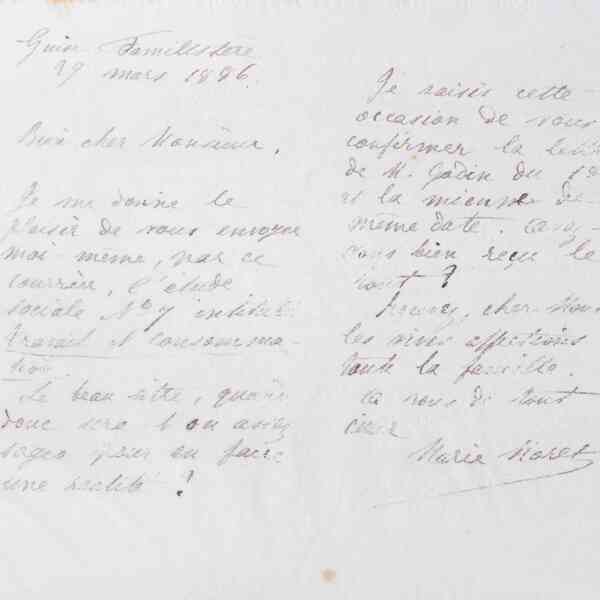 Guise Familistère
29 mars 1886.
Bien cher Monsieur,
Je me donne le
plaisir de vous envoyer
moi-même, par ce
courrier, l'étude
sociale No 7 intitulé
travail et Consomma-
tion.
Le beau titre, quand
donc sera t on assez
sages pour en faire
une réalité ?
Je saisis cette
occasion de vous
confirmer la lettre
de M. Godin du 18
et la mienne de
même date. Avez-
vous bien reçu le
tout ?
cher Mons
les vives affections
toute la famille.
à vous de tout
cœur
Marie Moret